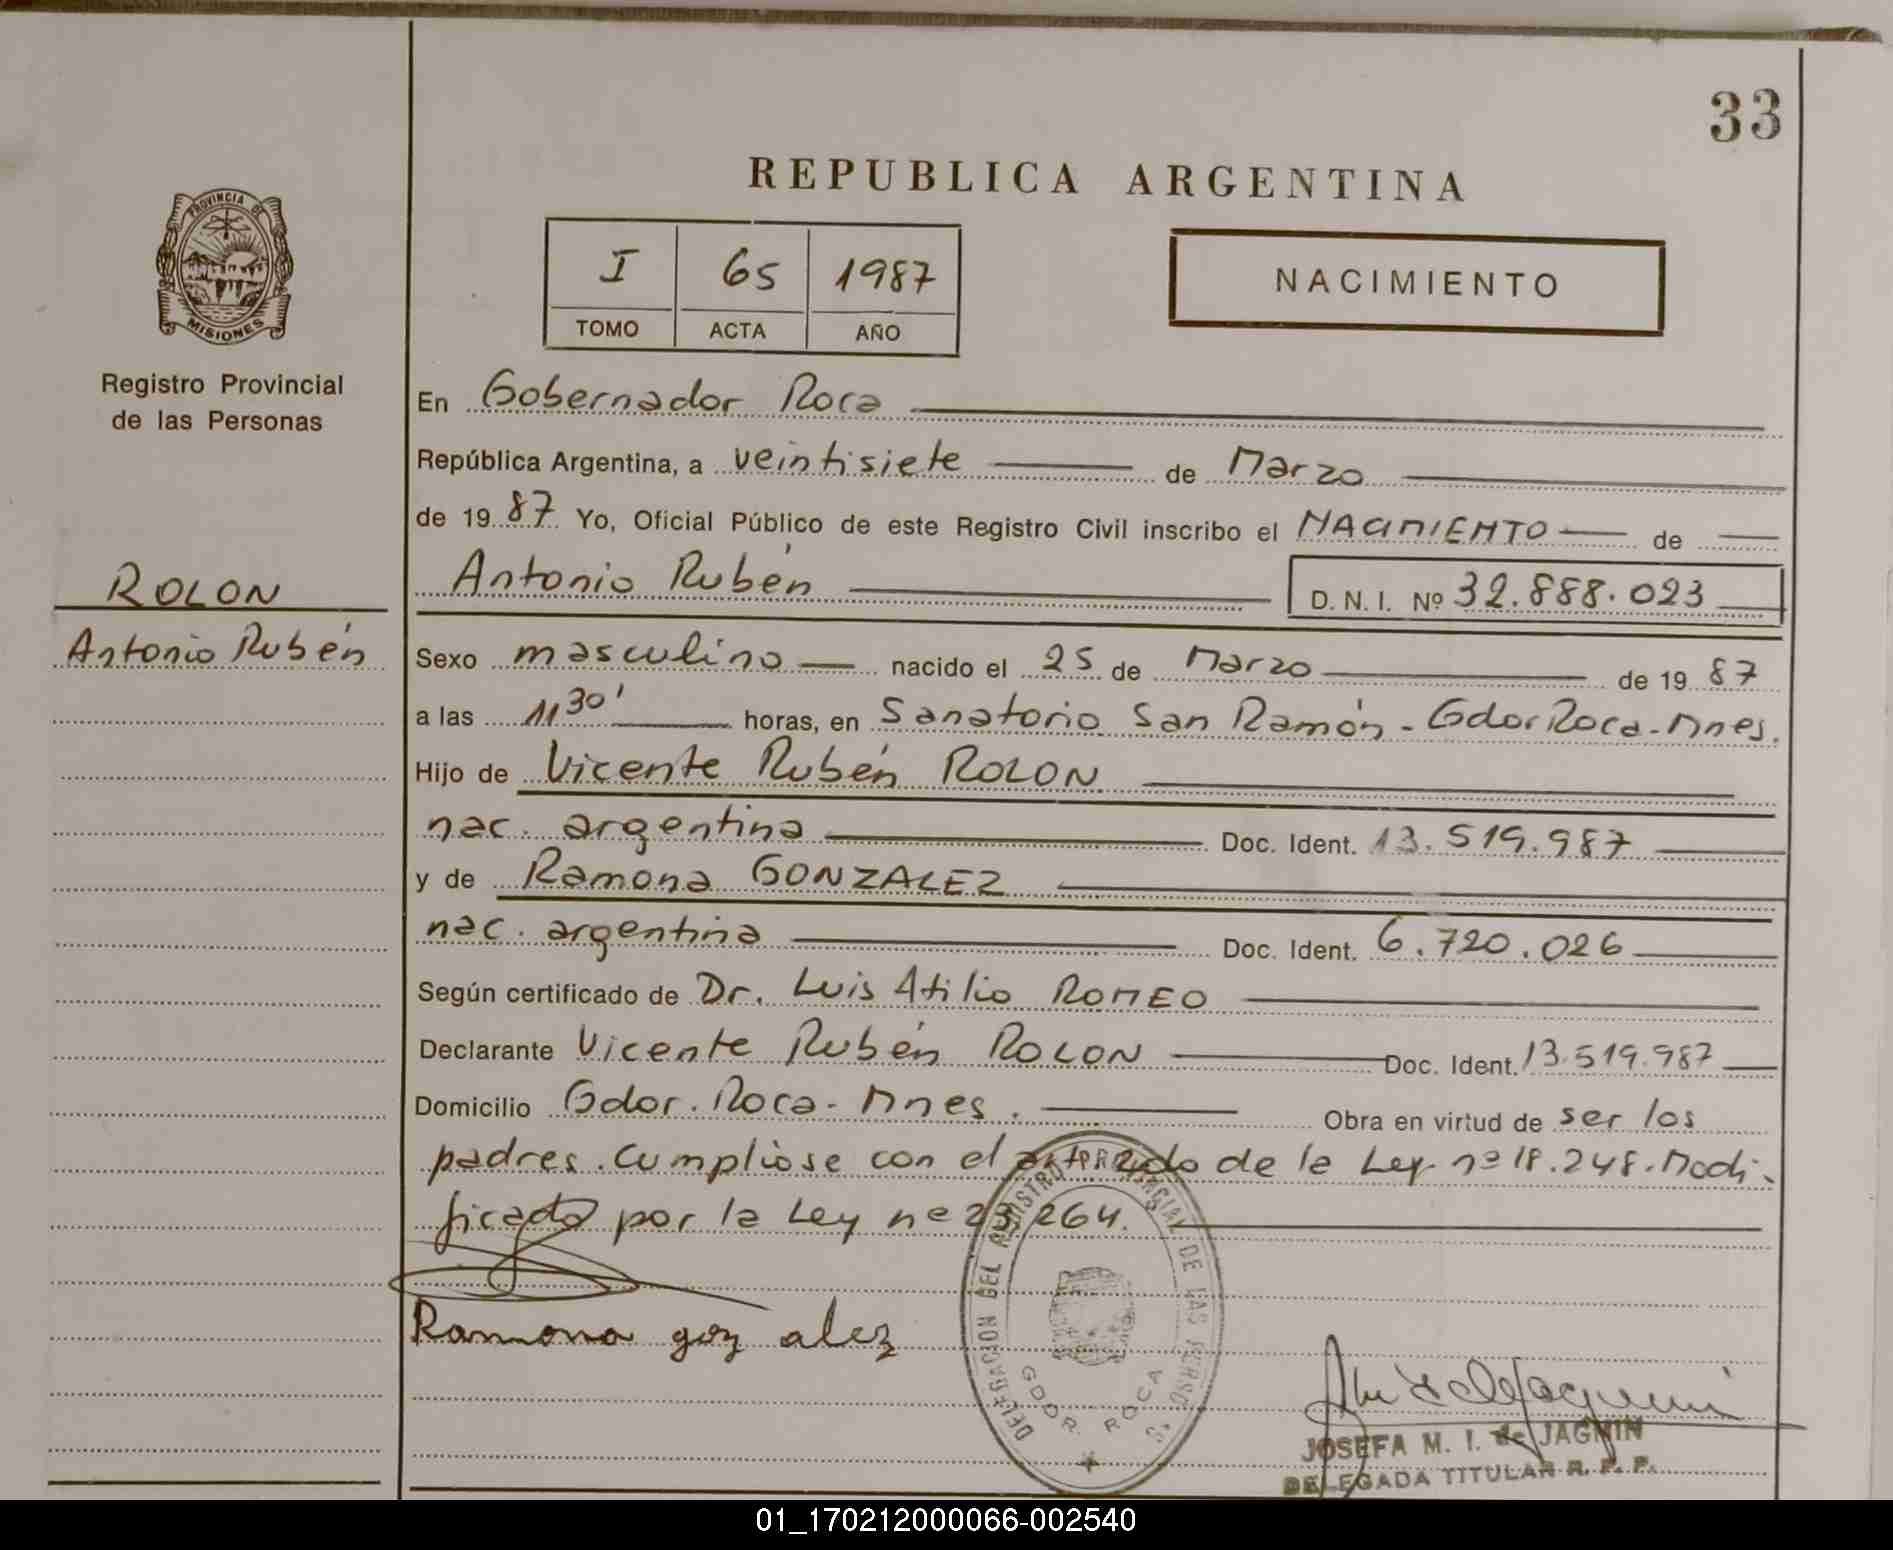 33
REPUBLICA ARGENTINA
PROVINCIA DE
MISIONES
I 65 1987
TOMO ACTA AÑO
NACIMIENTO
Registro Provincial
de las Personas
En Gobernador Roca
República Argentina, a veintisiete de Marzo
de 1987 Yo, Oficial Público de este Registro Civil inscribo el NACIMIENTO de
Antonio Rubén D. N. I. Nº 32.888.023
ROLON
Antonio Rubén
Sexo masculino nacido el 25 de Marzo de 1987
a las 11 30' horas, en Sanatorio San Ramón - Gdor Roca - Mnes.
Hijo de Vicente Rubén ROLON
nac. argentina Doc. Ident. 13.519.987
y de Ramona GONZALEZ
nac. argentina Doc. Ident. 6.720.026
Según certificado de Dr. Luis Atilio ROMEO
Declarante Vicente Rubén ROLON Doc. Ident. 13.519.987
Domicilio Gdor. Roca - Mnes. Obra en virtud de ser los
padres. Cumplióse con el de la Ley nº 18.248. Modi-
ficado por la Ley nº 23.264.
Ramona goz alez
DELEGACION DEL REGISTRO PROVINCIAL DE LAS PERSONAS
GDOR. ROCA
JOSEFA M. I. de JAGMIN
DELEGADA TITULAR R. P. P.
01_170212000066-002540